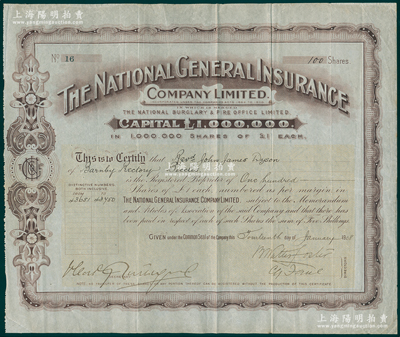 上海陽明拍賣
No. 16
100 Shares
THE NATIONAL GENERAL INSURANCE
COMPANY LIMITED.
THE NATIONAL BURGLARY & FIRE OFFICE LIMITED.
CAPITAL £1,000,000.
IN 1,000,000 SHARES OF £1 EACH.
This is to Certify that Revd. John James
of Barnby Rectory Beccles
is the Registered Proprietor of One hundred
Shares of £1 each numbered as per margin in
THE NATIONAL GENERAL INSURANCE COMPANY LIMITED subject to the Memorandum
and Articles of Association of the said Company and that there has
been paid in respect of each of such Shares the sum of Five Shillings
DISTINCTIVE NUMBERS
BOTH INCLUSIVE
GIVEN under the COMMON SEAL of the Company this day of January
上海陽明拍賣